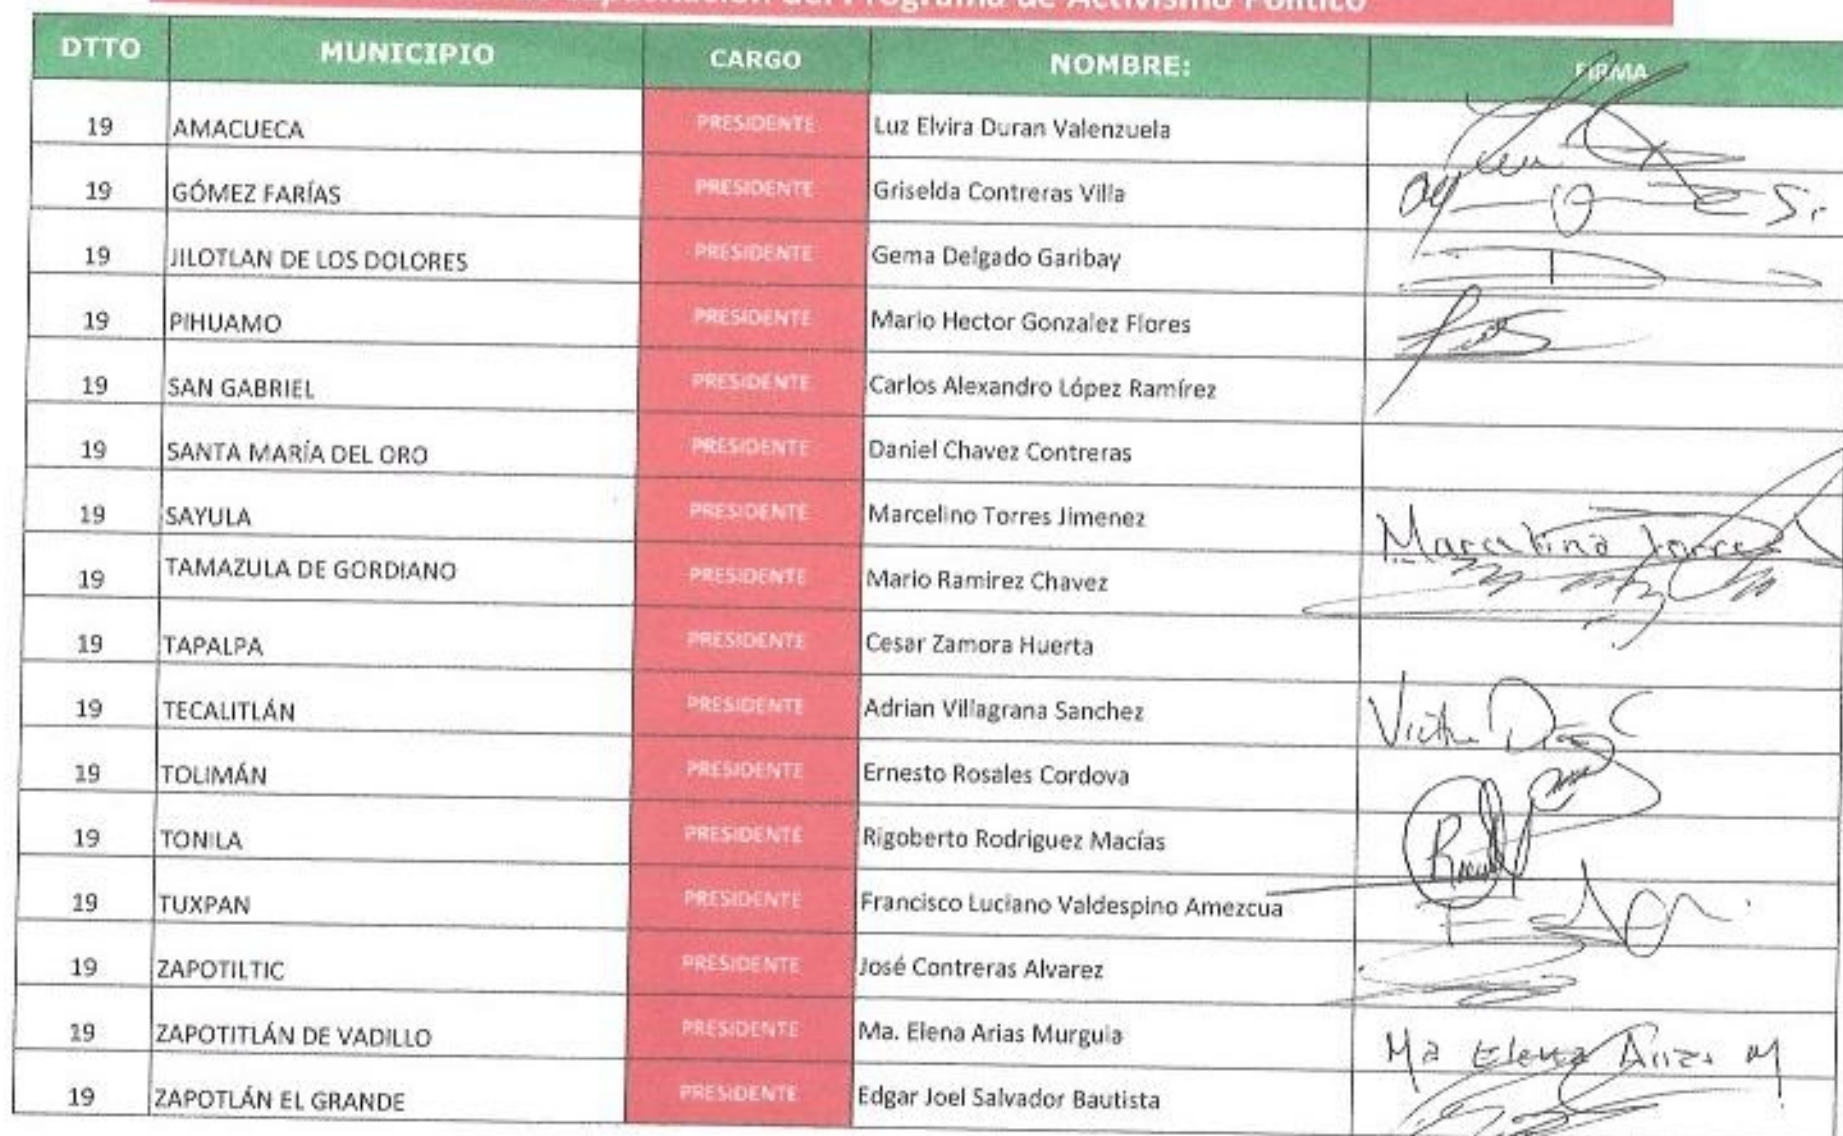 del Programa de Activismo Político
DTTO MUNICIPIO CARGO NOMBRE: FIRMA
19 AMACUECA PRESIDENTE Luz Elvira Duran Valenzuela
19 GÓMEZ FARÍAS PRESIDENTE Griselda Contreras Villa
19 JILOTLAN DE LOS DOLORES PRESIDENTE Gema Delgado Garibay
19 PIHUAMO PRESIDENTE Mario Hector Gonzalez Flores
19 SAN GABRIEL PRESIDENTE Carlos Alexandro López Ramírez
19 SANTA MARÍA DEL ORO PRESIDENTE Daniel Chavez Contreras
19 SAYULA PRESIDENTE Marcelino Torres Jimenez Marcelino Torres
19 TAMAZULA DE GORDIANO PRESIDENTE Mario Ramirez Chavez
19 TAPALPA PRESIDENTE Cesar Zamora Huerta
19 TECALITLÁN PRESIDENTE Adrian Villagrana Sanchez
19 TOLIMÁN PRESIDENTE Ernesto Rosales Cordova
19 TONILA PRESIDENTE Rigoberto Rodriguez Macías
19 TUXPAN PRESIDENTE Francisco Luciano Valdespino Amezcua
19 ZAPOTILTIC PRESIDENTE José Contreras Alvarez
19 ZAPOTITLÁN DE VADILLO PRESIDENTE Ma. Elena Arias Murguia Ma Elena Arias M
19 ZAPOTLÁN EL GRANDE PRESIDENTE Edgar Joel Salvador Bautista